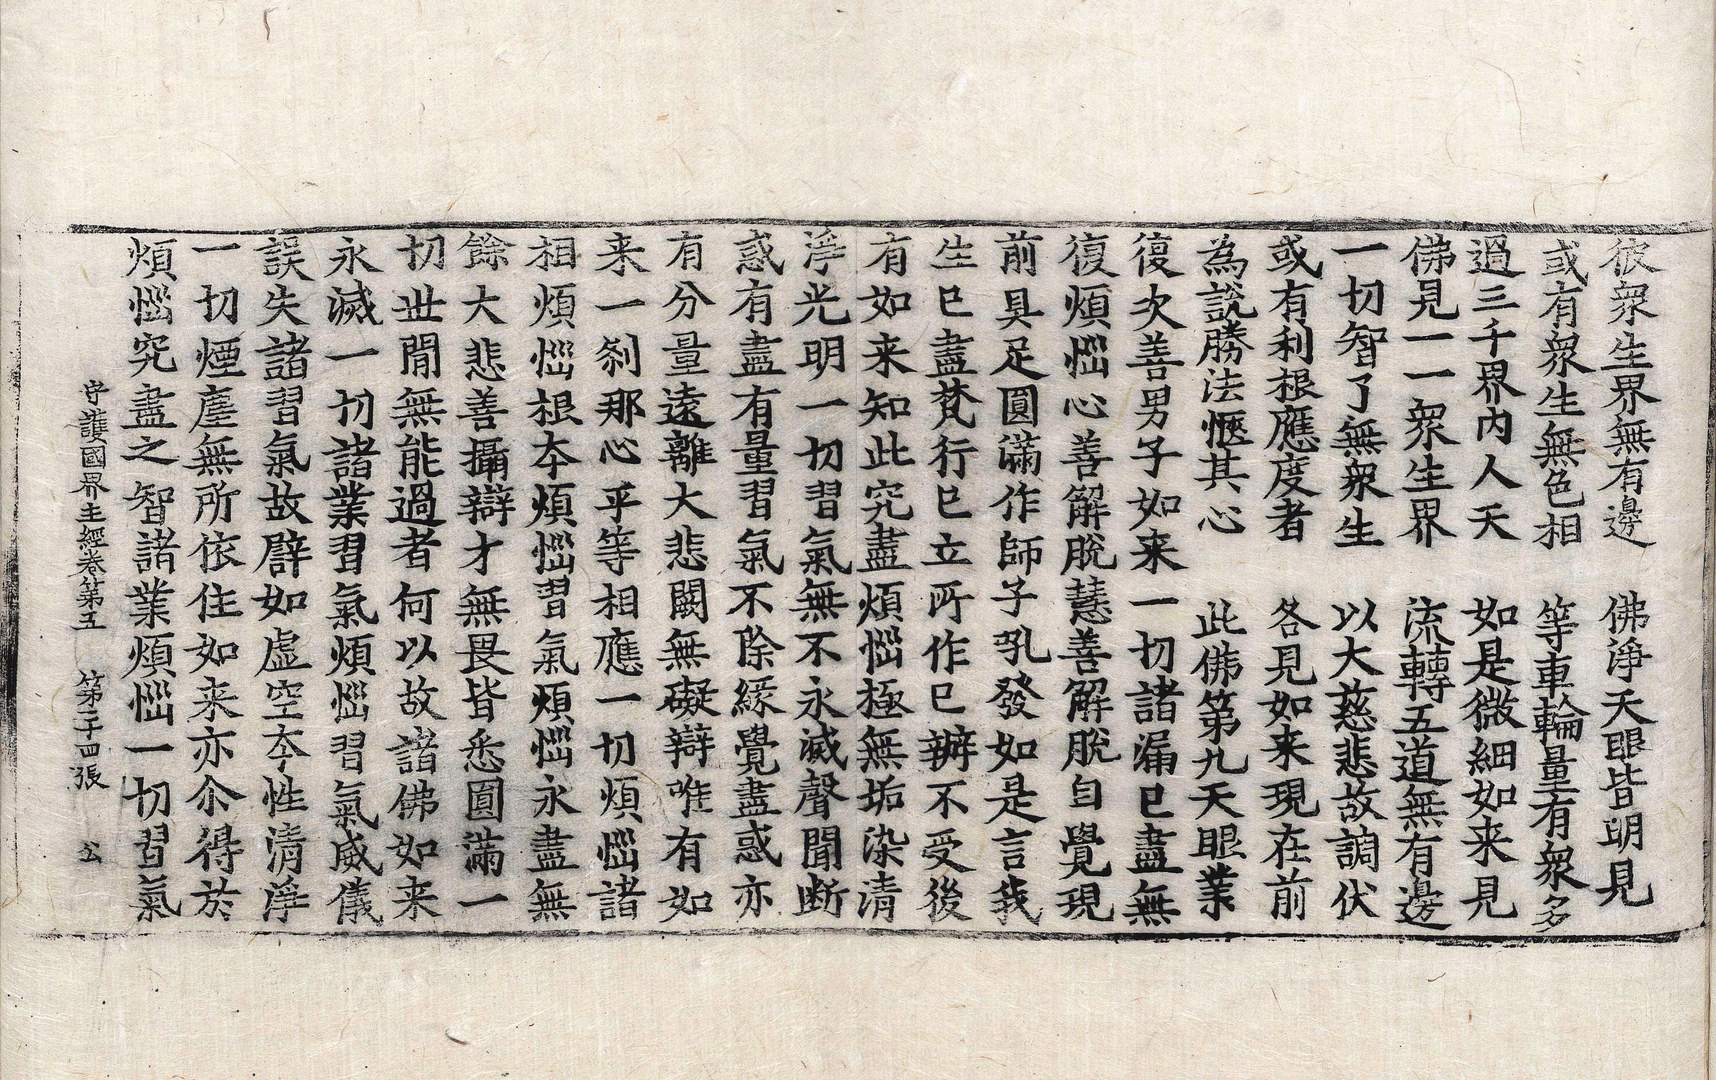 彼衆生界無有邊　佛淨天眼皆明見
或有衆生無色相　等車輪量有衆多
過三千界內人天　如是微細如来見
佛見一一衆生界　流轉五道無有邊
一切智了無衆生　以大慈悲故調伏
或有利根應度者　各見如来現在前
為說勝法愜其心　此佛第九天眼業
復次善男子如来一切諸漏已盡無
復煩惱心善解脫慧善解脫自覺現
前具足圓滿作師子吼發如是言我
生已盡梵行已立所作已辦不受後
有如来知此究盡煩惱極無垢染清
淨光明一切習氣無不永滅聲聞断
惑有盡有量習氣不除緣覺盡惑亦
有分量遠離大悲闕無礙辯唯有如
来一刹那心平等相應一切煩惱諸
相煩惱根本煩惱習氣煩惱永盡無
餘大悲善攝辯才無畏皆悉圓滿一
切世間無能過者何以故諸佛如来
永滅一切諸業習氣煩惱習氣威儀
誤失諸習氣故辟如虛空本性清淨
一切煙塵無所依住如来亦尒得於
煩惱究盡之智諸業煩惱一切習氣
守護國界主經卷第五　第二十四張　公